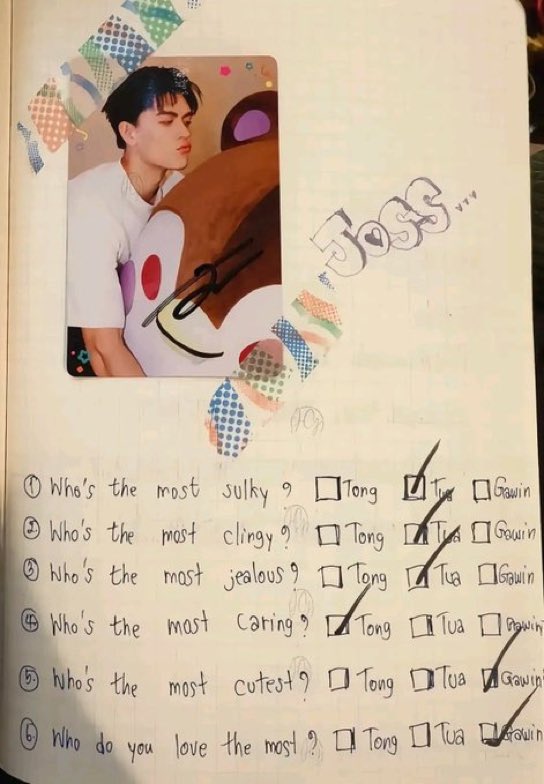 JOSS
① Who's the most sulky? □ Tong ☑ Tua □ Gawin
② Who's the most clingy? □ Tong ☑ Tua □ Gawin
③ Who's the most jealous? □ Tong ☑ Tua □ Gawin
④ Who's the most caring? ☑ Tong □ Tua □ Gawin
⑤ Who's the most cutest? □ Tong □ Tua ☑ Gawin
⑥ Who do you love the most? □ Tong □ Tua ☑ Gawin